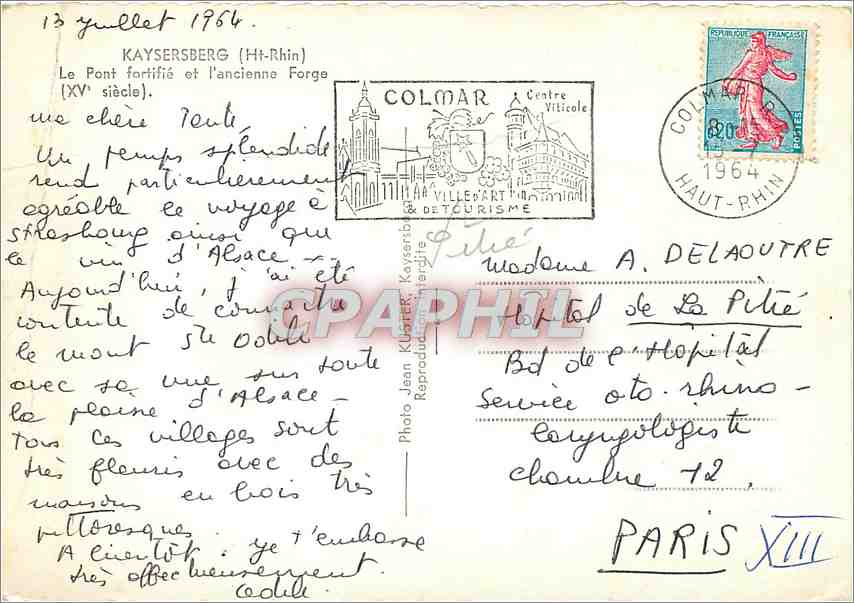 13 Juillet 1964.
KAYSERSBERG (Ht-Rhin)
Le Pont fortifié et l'ancienne Forge
(XVe siècle).
ma chère Tante,
Un temps splendide
rend particulièrement
agréable le voyage à
Strasbourg ainsi que
le vin d'Alsace --
Aujourd'hui, j'ai été
contente de connaître
le mont Ste Odile
avec sa vue sur toute
la plaine d'Alsace -
Tous ces villages sont
très fleuris avec des
maisons en bois très
pittoresques.
A bientôt. je t'embrasse
très affectueusement.
Odile.
COLMAR
Centre
Viticole
VILLE D'ART
& DE TOURISME
REPUBLIQUE FRANÇAISE
0,20
POSTES
COLMAR R.P.
1964
HAUT-RHIN
Photo Jean KUSTER, Kaysersberg
Reproduction interdite
Pitié
CPAPHIL
Madame A. DELAOUTRE
Hôpital de La Pitié
Bd de l'Hôpital
Service oto-rhino-
laryngologiste
chambre 12.
PARIS XIII